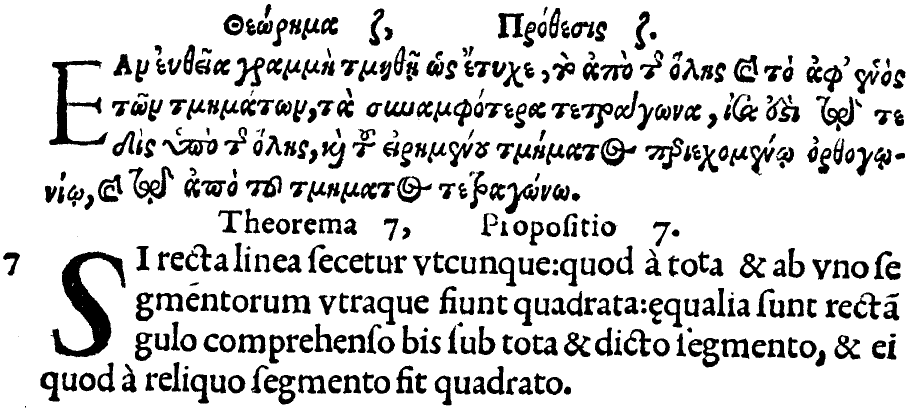 Θεώρημα ζ, Πρόθεσις ζ.
ΕΑν ἐυθεῖα γραμμὴ τμηθῇ ὡς ἔτυχε, τὸ ἀπὸ τ῀ ὅλης καὶ τὸ ἀφ’ ἑνὸς
τῶν τμημάτων, τὰ συναμφότερα τετράγωνα, ἴσα ἐστὶ τῷ τε
δὶς ὑπὸ τ῀ ὅλης, καὶ τοῦ εἰρημένου τμήματος περιεχομένῳ ὀρθογω-
νίῳ, καὶ τῷ ἀπὸ τοῦ τμηματος τετραγώνω.
Theorema 7, Propositio 7.
7 SI recta linea ſecetur vtcunque:quod à tota & ab vno ſe
gmentorum vtraque fiunt quadrata:ęqualia ſunt rectã
gulo comprehenſo bis ſub tota & dicto ſegmento, & ei
quod à reliquo ſegmento fit quadrato.